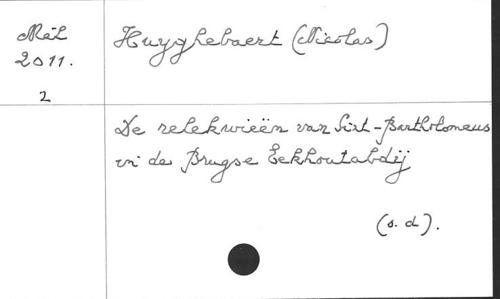 Mél
2011.
2
Huyghebaert (Nicolas)
De relekwieën van Sint-Bartholomeus
in de Brugse Eekhoutabdij
(s.d).